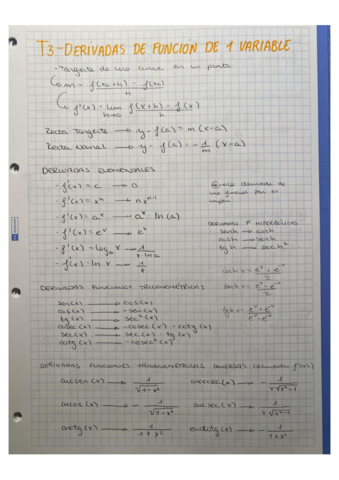 T3-DERIVADAS DE FUNCIÓN DE 1 VARIABLE
- Tangente de una curva en un punto
m = f(x₀+h) - f(x₀) / h
f'(x) = lim h→0 f(x+h) - f(x) / h
Recta Tangente → y - f(a) = m (x-a)
Recta Normal → y - f(a) = - 1/m (x-a)
DERIVADAS ELEMENTALES
- f'(x) = c → 0
- f'(x) = xⁿ → n xⁿ⁻¹
- f'(x) = aˣ → aˣ ln (a)
- f'(x) = eˣ → eˣ
- f'(x) = logₐ x → 1 / x·ln a
- f'(x) · ln x → 1/x
derivada de
una función par es
impar
DERIVADAS F HIPERBÓLICAS
senh → cosh
cosh → senh
tgh → sech²
cosh x = eˣ + e⁻ˣ / 2
senh x = eˣ - e⁻ˣ / 2
tgh x = eˣ - e⁻ˣ / eˣ + e⁻ˣ
DERIVADAS FUNCIONES TRIGONOMÉTRICAS
sen(x) → cos(x)
cos(x) → - sen(x)
tg(x) → sec²(x)
cosec(x) → - cosec(x) · cotg(x)
sec(x) → sec(x) · tg(x)
cotg(x) → - cosec²(x)
DERIVADAS FUNCIONES TRIGONOMÉTRICAS INVERSAS f'(x)
arcsen(x) → 1 / √1-x²
arccosec(x) → - 1 / x√x²-1
arccos(x) → - 1 / √1-x²
arcsec(x) → 1 / x√x²-1
arctg(x) → 1 / 1+x²
arccotg(x) → - 1 / 1+x²